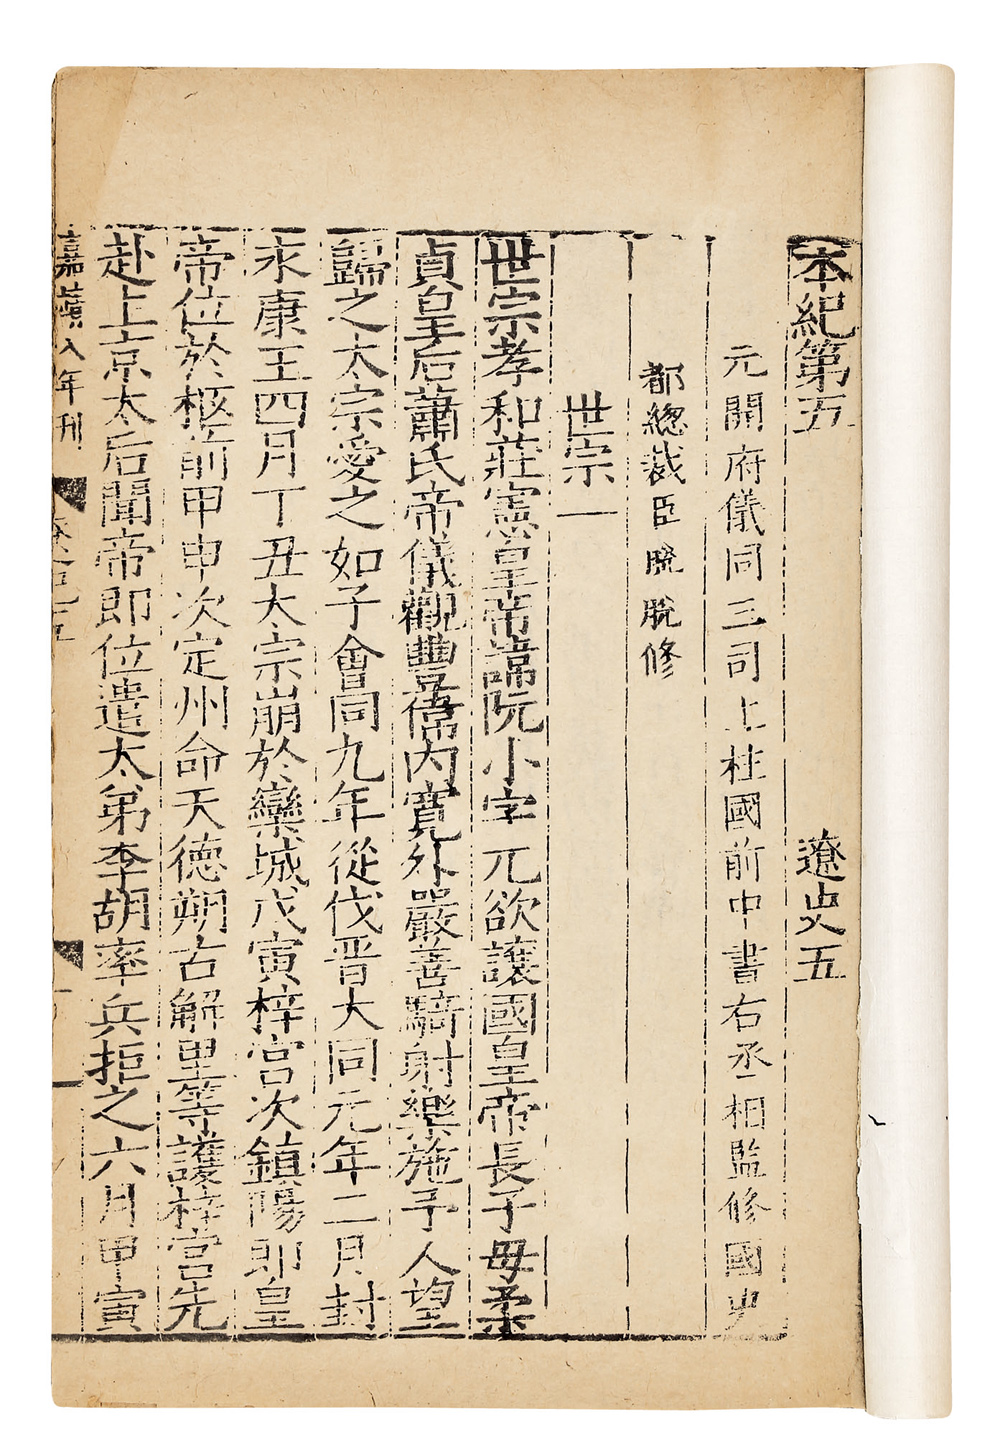 本紀第五 遼史五
元開府儀同三司上柱國前中書右丞相監修國史
都總裁臣脫脫修
世宗一
世宗孝和莊憲皇帝諱阮小字兀欲讓國皇帝長子母柔
貞皇后蕭氏帝儀觀豐偉內寬外嚴善騎射樂施予人望
歸之太宗愛之如子會同九年從伐晉大同元年二月封
永康王四月丁丑太宗崩於欒城戊寅梓宮次鎮陽即皇
帝位於柩前甲申次定州命天德朔古解里等護梓宮先
赴上京太后聞帝即位遣太弟李胡率兵拒之六月甲寅
嘉靖八年刊